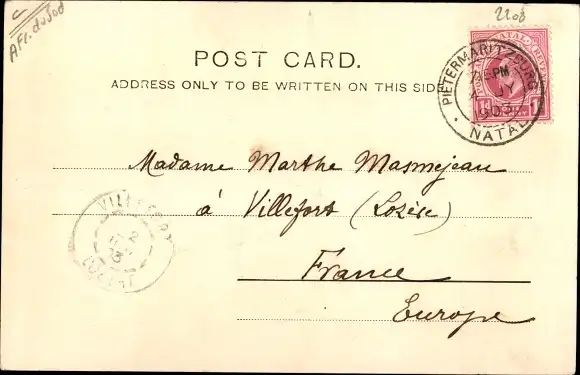 Afr. du Sud
2208
POST CARD.
ADDRESS ONLY TO BE WRITTEN ON THIS SIDE
PIETERMARITZBURG
PM
JY
1903
NATAL
Madame Marthe Masmejean
à Villefort (Lozère)
France
Europe
VILLEFORT
LOZERE